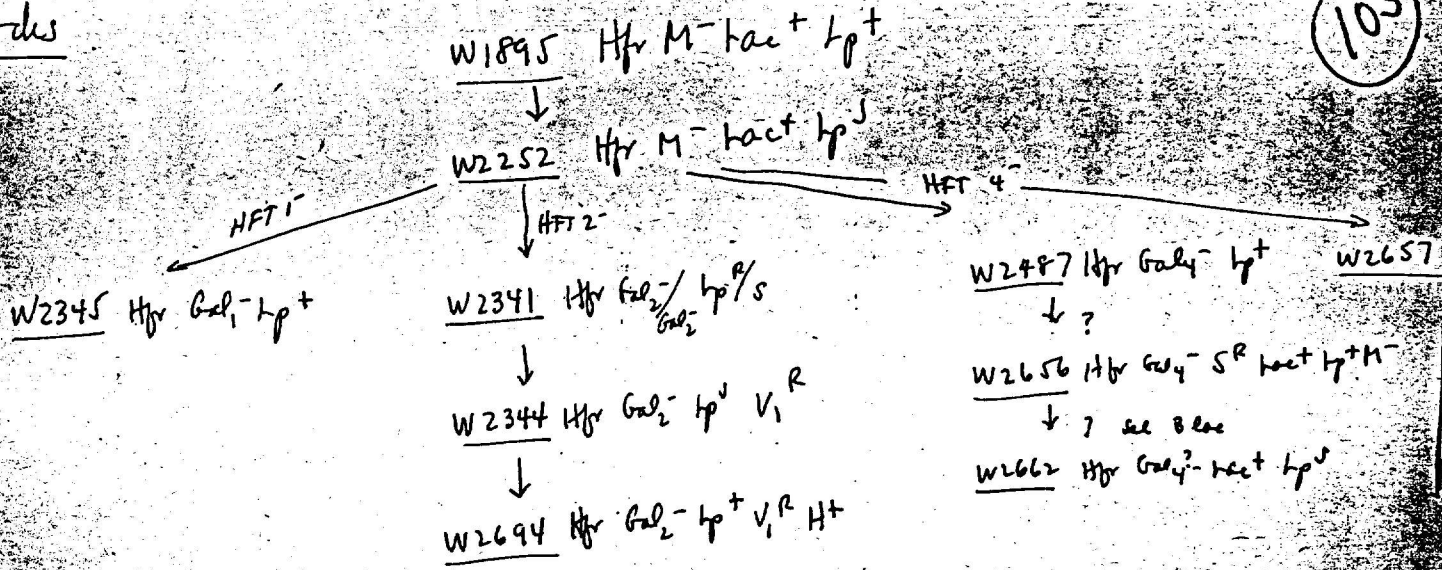 W1895 Hfr M⁻ Lac⁺ Lp⁺
↓
W2252 Hfr M⁻ Lac⁺ Lpˢ
HFT 1⁻
HFT 2⁻
HFT 4⁻
W2345 Hfr Gal₁⁻ Lp⁺
W2341 Hfr Gal₂⁻/Gal₂⁻ Lpᴿ/s
↓
W2344 Hfr Gal₂⁻ Lpˢ V₁ᴿ
↓
W2694 Hfr Gal₂⁻ Lp⁺ V₁ᴿ H+
W2487 Hfr Gal₄⁻ Lp⁺
↓ ?
W2656 Hfr Gal₄⁻ Sᴿ Lac⁺ Lp⁺ M⁻
↓ ?
W2662 Hfr Gal₄?⁻ Lac⁺ Lpˢ
W2657